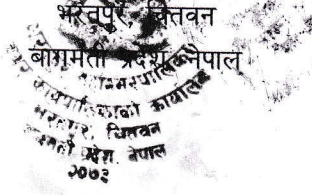 भरतपुर, चितवन
बागमती प्रदेश, नेपाल
कार्यपालिकाको कार्यालय
भरतपुर, चितवन
बागमती प्रदेश, नेपाल
२०७३